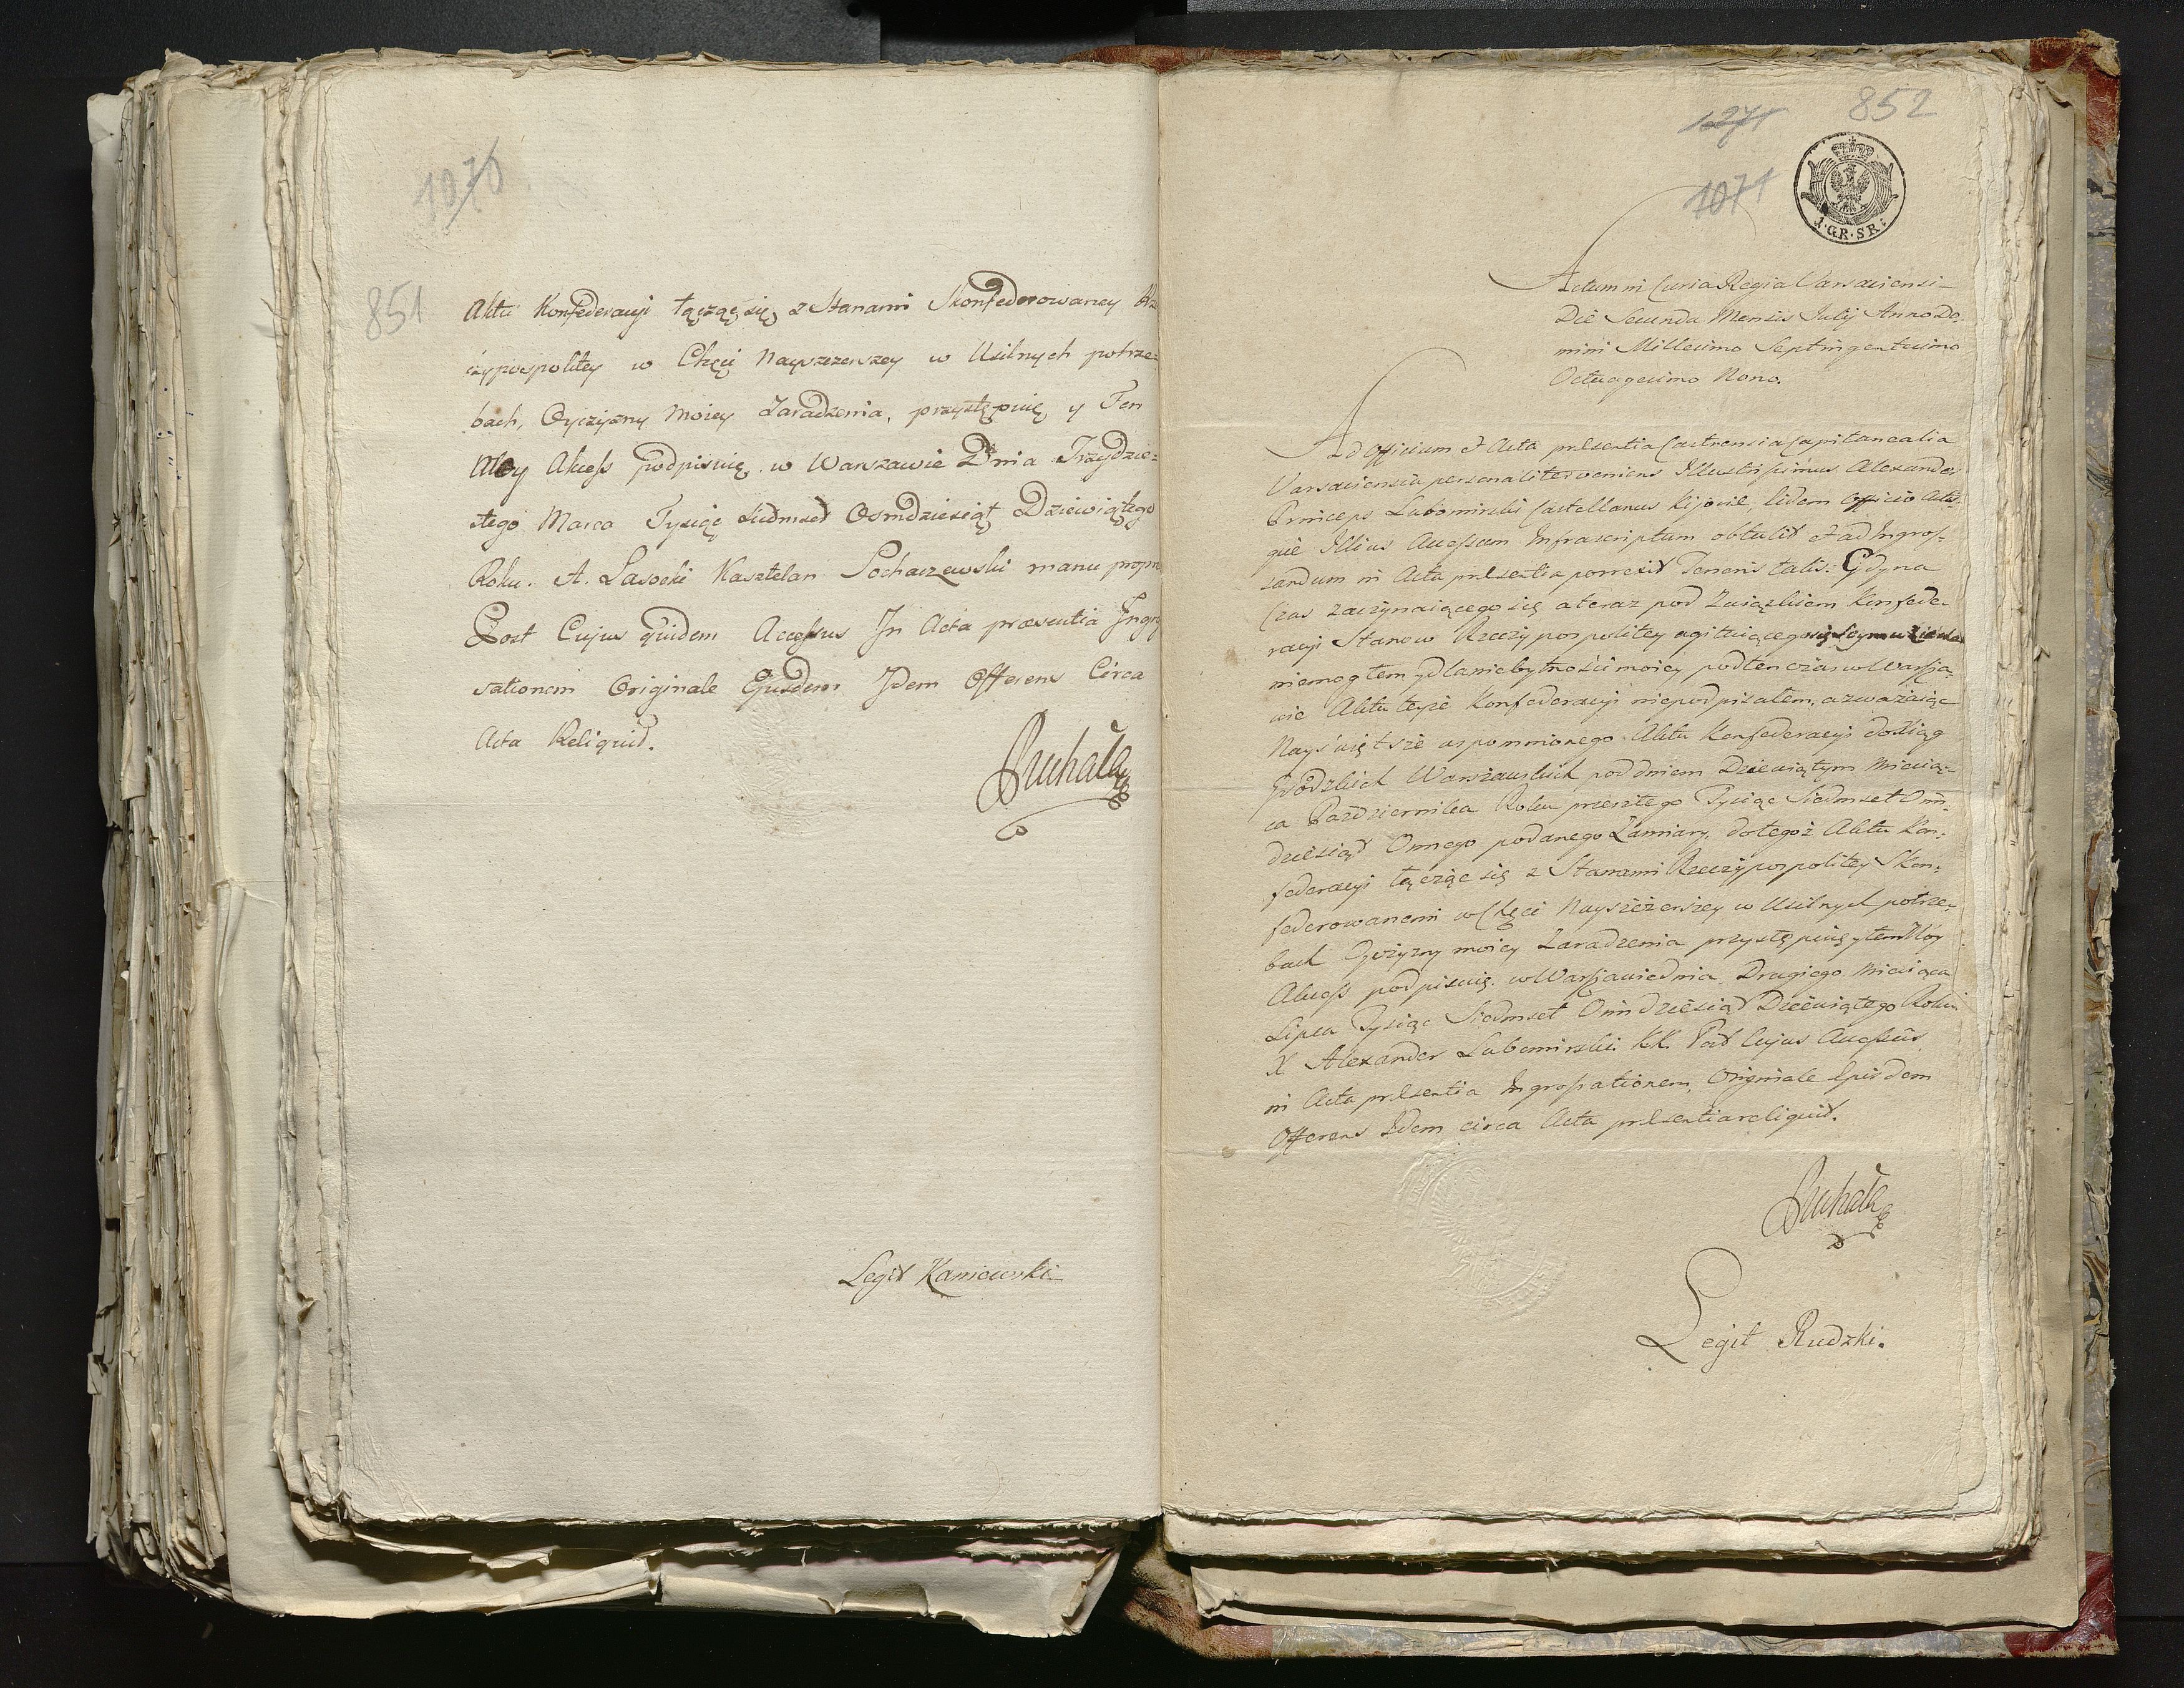 1070
851
Aktu Konfederacyi łącząc się z Stanami Skonfederowaney Rze
czypospolitey w Chęci Nayszczerszey w Usilnych potrze=
bach, Oyczyzny Moiey Zaradzenia, przystępuię, y Ten
Móy Akcess podpisuię. w Warszawie Dnia Trzydzie=
stego Marca Tysiąc Siedmset Osmdziesiąt Dziewiątego
Roku. A. Lasocki Kasztelan Sochaczewski manu propr
Post Cujus quidem Accessus In Acta præsentia Ingro
sationem Originale Ejusdem Idem Offerens Circa
Acta Reliquit.
Puchała
Legit Kaniewski
852
1271
1071
1.GR.SR:
Actum in Curia Regia Varsaviensi
Die Secunda Mensis Julij Anno Do.
mini Millesimo Septingentesimo
Octuagesimo Nono.
Ad Officium et Acta præsentia Castrensia Capitanealia
Varsaviensia personaliter veniens Illustrissimus Alexander
Princeps Lubomirski Castellanus Kijoviæ, eidem Officio Actis
que Illius Accessum Infrascriptum obtulit et ad Ingros-
sandum in Acta præsentia porrexit Tenoris talis: Gdy na
Czas zaczynaiącego się a teraz pod Związkiem Konfede-
racyi Stanow Rzeczypospolitey agituiącego się Seymu ziechać
niemogłem y dla niebytności moiey podten czas w Warsza-
wie Aktu teyże Konfederacyi niepodpisałem, a zważaiąc
Nayświętsze wspomnionego Aktu Konfederacyi do Xiąg
Grodzkich Warszawskich pod dniem Dziewiątym Miesią-
ca Października Roku przeszłego Tysiąc Siedmset Osm-
dziesiąt Osmego podanego Zamiary, do tegoż Aktu Kon-
federacyi łącząc się z Stanami Rzeczypospolitey Skon-
federowanemi w Chęci Nayszczerszey w Usilnych potrze-
bach Oyczyzny moiey Zaradzenia przystępuię y ten Móy
Akcess podpisuię. w Warszawie dnia Drugiego Miesiąca
Lipca Tysiąc Siedmset Osmdziesiąt Dziewiątego Roku
X Alexander Lubomirski KK. Post Cujus Accessus
in Acta præsentia Ingrossationem, Originale Ejusdem
Offerens Idem circa Acta præsentia reliquit.
Puchała
Legit Rudzki.